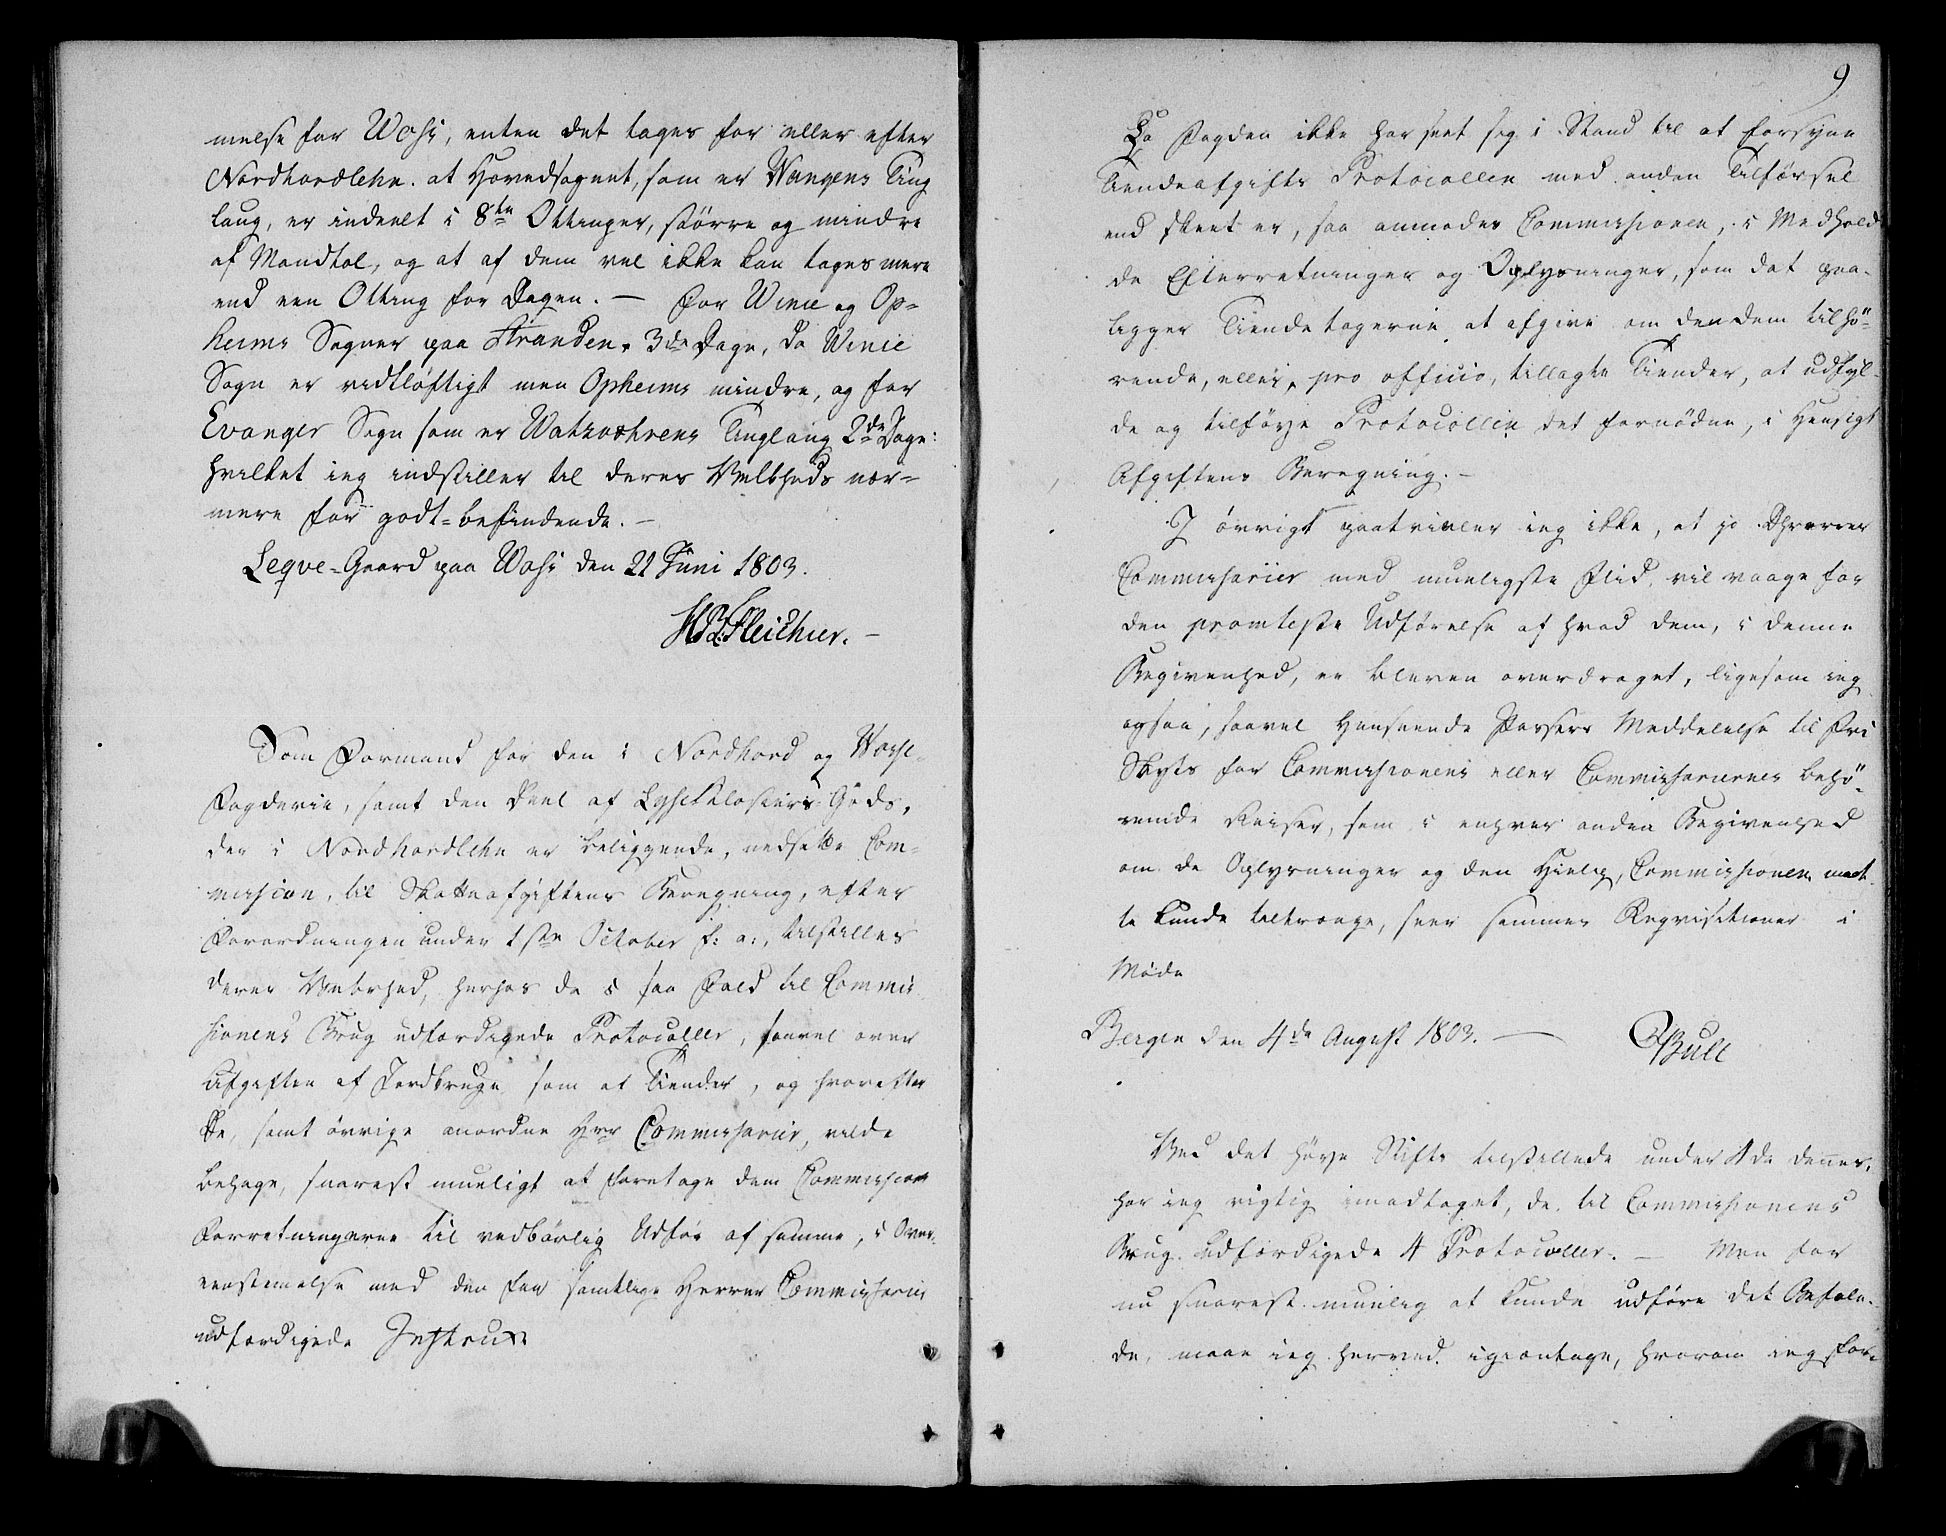 melse for Woss, enten det tages for eller efter
Nordhordlehn. at Hovedsognet, som er Wangens Ting
laug, er indeelt i 8te Ottinger, større og mindre
af Mandtal, og at af dem vel ikke kan tages mere
end een Otting for Dagen. — For Winie og Op=
heims Sogner paa Stranden. 3de Dage, da Winie
Sogn er vidtløftigt men Opheims mindre, og for
Evanger Sogn som er Tinglaug 2de Dage:
hvilket ieg indstiller til deres Velbheds nær=
mere for godt=befindende. —
Leqve=Gaard paa Woss den 21 Juni 1803.
Fleischer. —
Som Formand for den i Nordhord og Wosse-
Fogderie, samt den Deel af Lyseklosters Gods,
der i Nordhordlehn er beliggende, nedsatte Com-
mission, til Skatteafgiftens Beregning, efter
Forordningen under 1ste October f: a:, tilstilles
deres Velbrhed, herhos de i saa Fald til Commis
sionens Brug udfærdigede Protocoller, saavel over
Afgiften af Jordbruge som af Tiender, og hvorefter
De, samt øvrige anordnede Hrr Commissarier, vilde
behage, snarest mueligt at foretage dem Commissions
Forretningerne til vedbørlig Udfør af samme, i Over-
eenstemelse med den for samtlige Herrer Commissarier
udfærdigede Instrux
9
Da Fogden ikke har seet sig i Stand til at forsyne
Tiendeafgifts Protocollen med anden Tilførsel
end skeet er, saa anmodes Commissionen, i Medhold
de Efterretninger og Oplysninger, som det paa-
ligger Tiendetagerne at afgive om den dem tilhø-
rende, eller, pro officio, tillagte Tiender, at udfyl-
de og tilføye Protocollen det fornødne, i Hensigt
Afgiftens Beregning. —
I øvrigt paatvivler ieg ikke, at jo Dhrrerrer
Commissarier med mueligste Flid, vil vaage for
den promteste Udførelse af hvad dem, i denne
Begivenhed, er bleven overdraget, ligesom ieg
ogsaa, saavel Henseende Passers Meddelelse til Fri
Skyts for Commissionens eller Commissariernes behø-
vende Reiser, som i enhver anden Begivenhed
om de Oplysninger og den Hielp, Commissionen maat
te kunde tiltrænge, seer sammes Reqvisitioner i
Møde
Bergen den 4de August 1803. — Bull
Ved det høye Stifts tilstillede under 4de dennes,
har ieg rigtig imodtaget, de til Commissionens
Brug Udfærdigede 4 Protocoller. — Men for
nu snarest muelig at kunde udføre det Befale-
de, maae ieg herved igientage, hvorom ieg for-